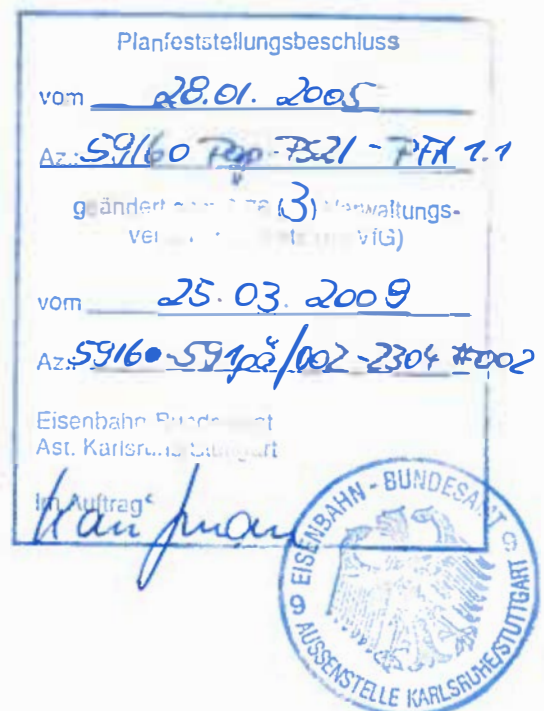 Planfeststellungsbeschluss
vom 28.01. 2005
Az.: 59160 Pap-PS21 - PFA 1.1
geändert (3) Verwaltungs-
VfG)
vom 25.03. 2009
Az.: 59160-591pä/002-2304 #002
Eisenbahn
Ast. Karlsruhe/Stuttgart
Im Auftrag
EISENBAHN - BUNDESAMT
9 9
AUSSENSTELLE KARLSRUHE/STUTTGART